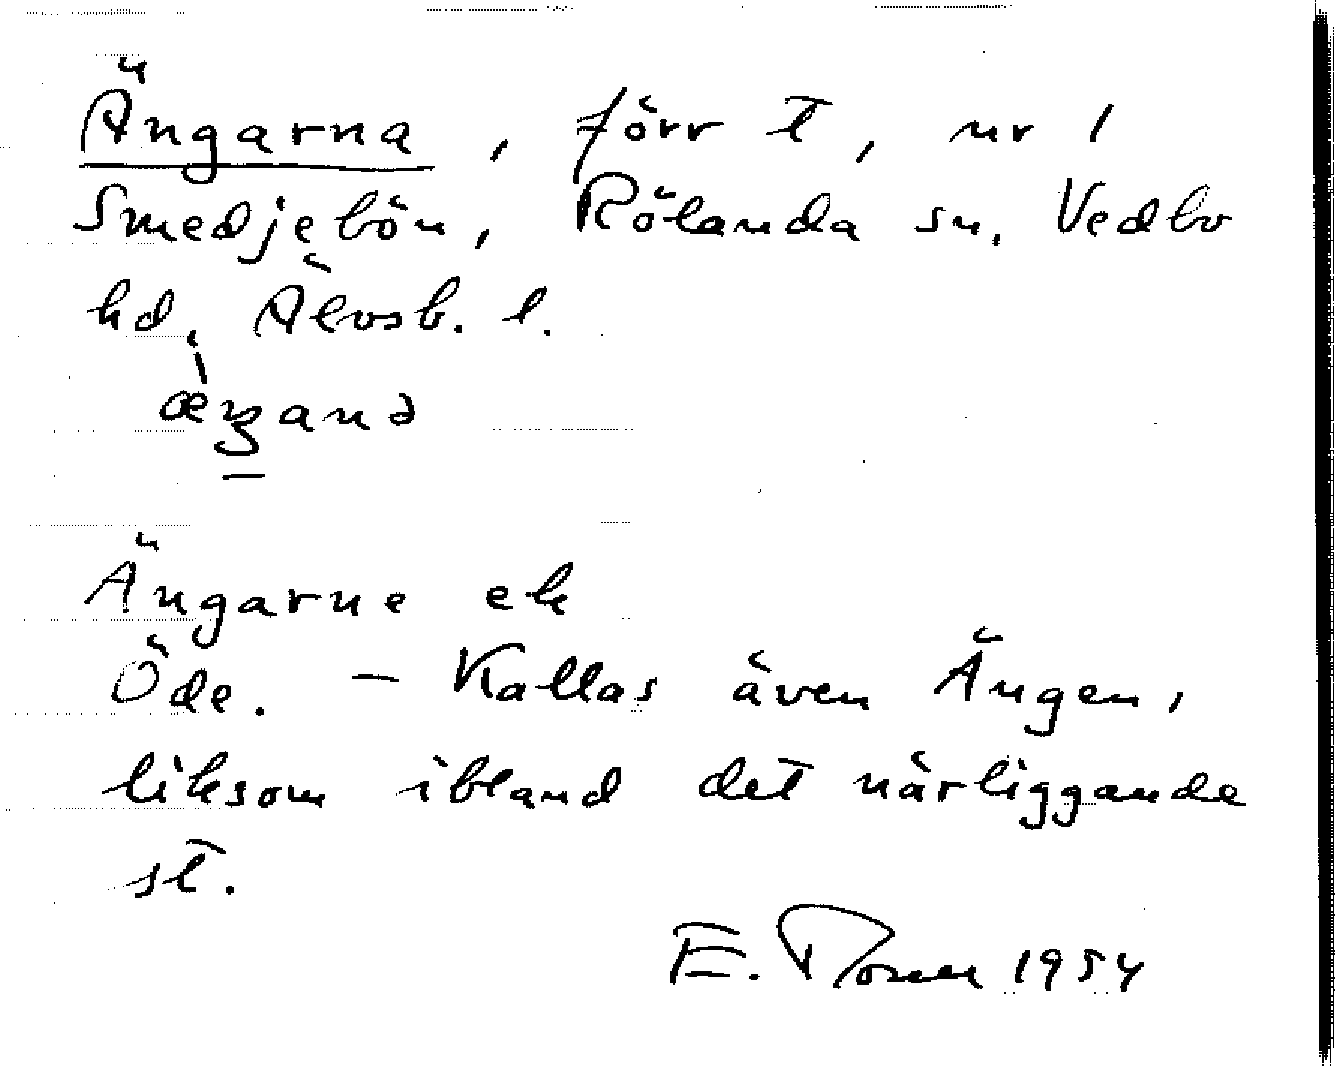 Ängarna, förr t, nr 1
Smedjebön, Rölanda sn, Vedbo
hd, Älvsb. l.
Ängarne ek
Öde. – Kallas även Ängen,
liksom ibland det närliggande
st.
E. 1954